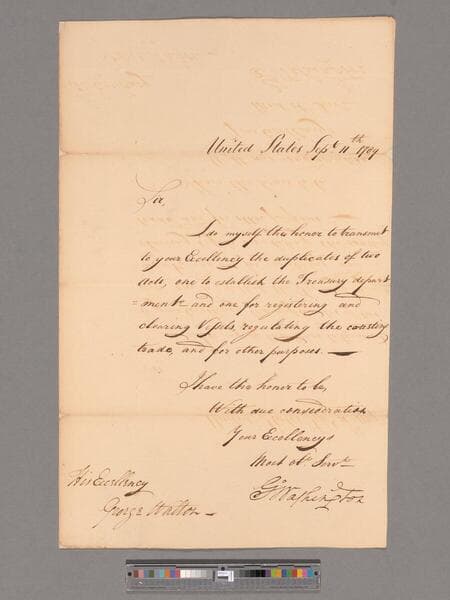 United States Sept. 11th 1789
Sir,
I do myself the honor to transmit
to your Excellency the duplicates of two
Acts, one to establish the Treasury depart
=ment and one for registering and
clearing Vessels, regulating the coasting
trade, and for other purposes. —
I have the honor to be,
With due consideration
Your Excellencys
Most obt. Servt.
His Excellency
Go Washington
George Walton —